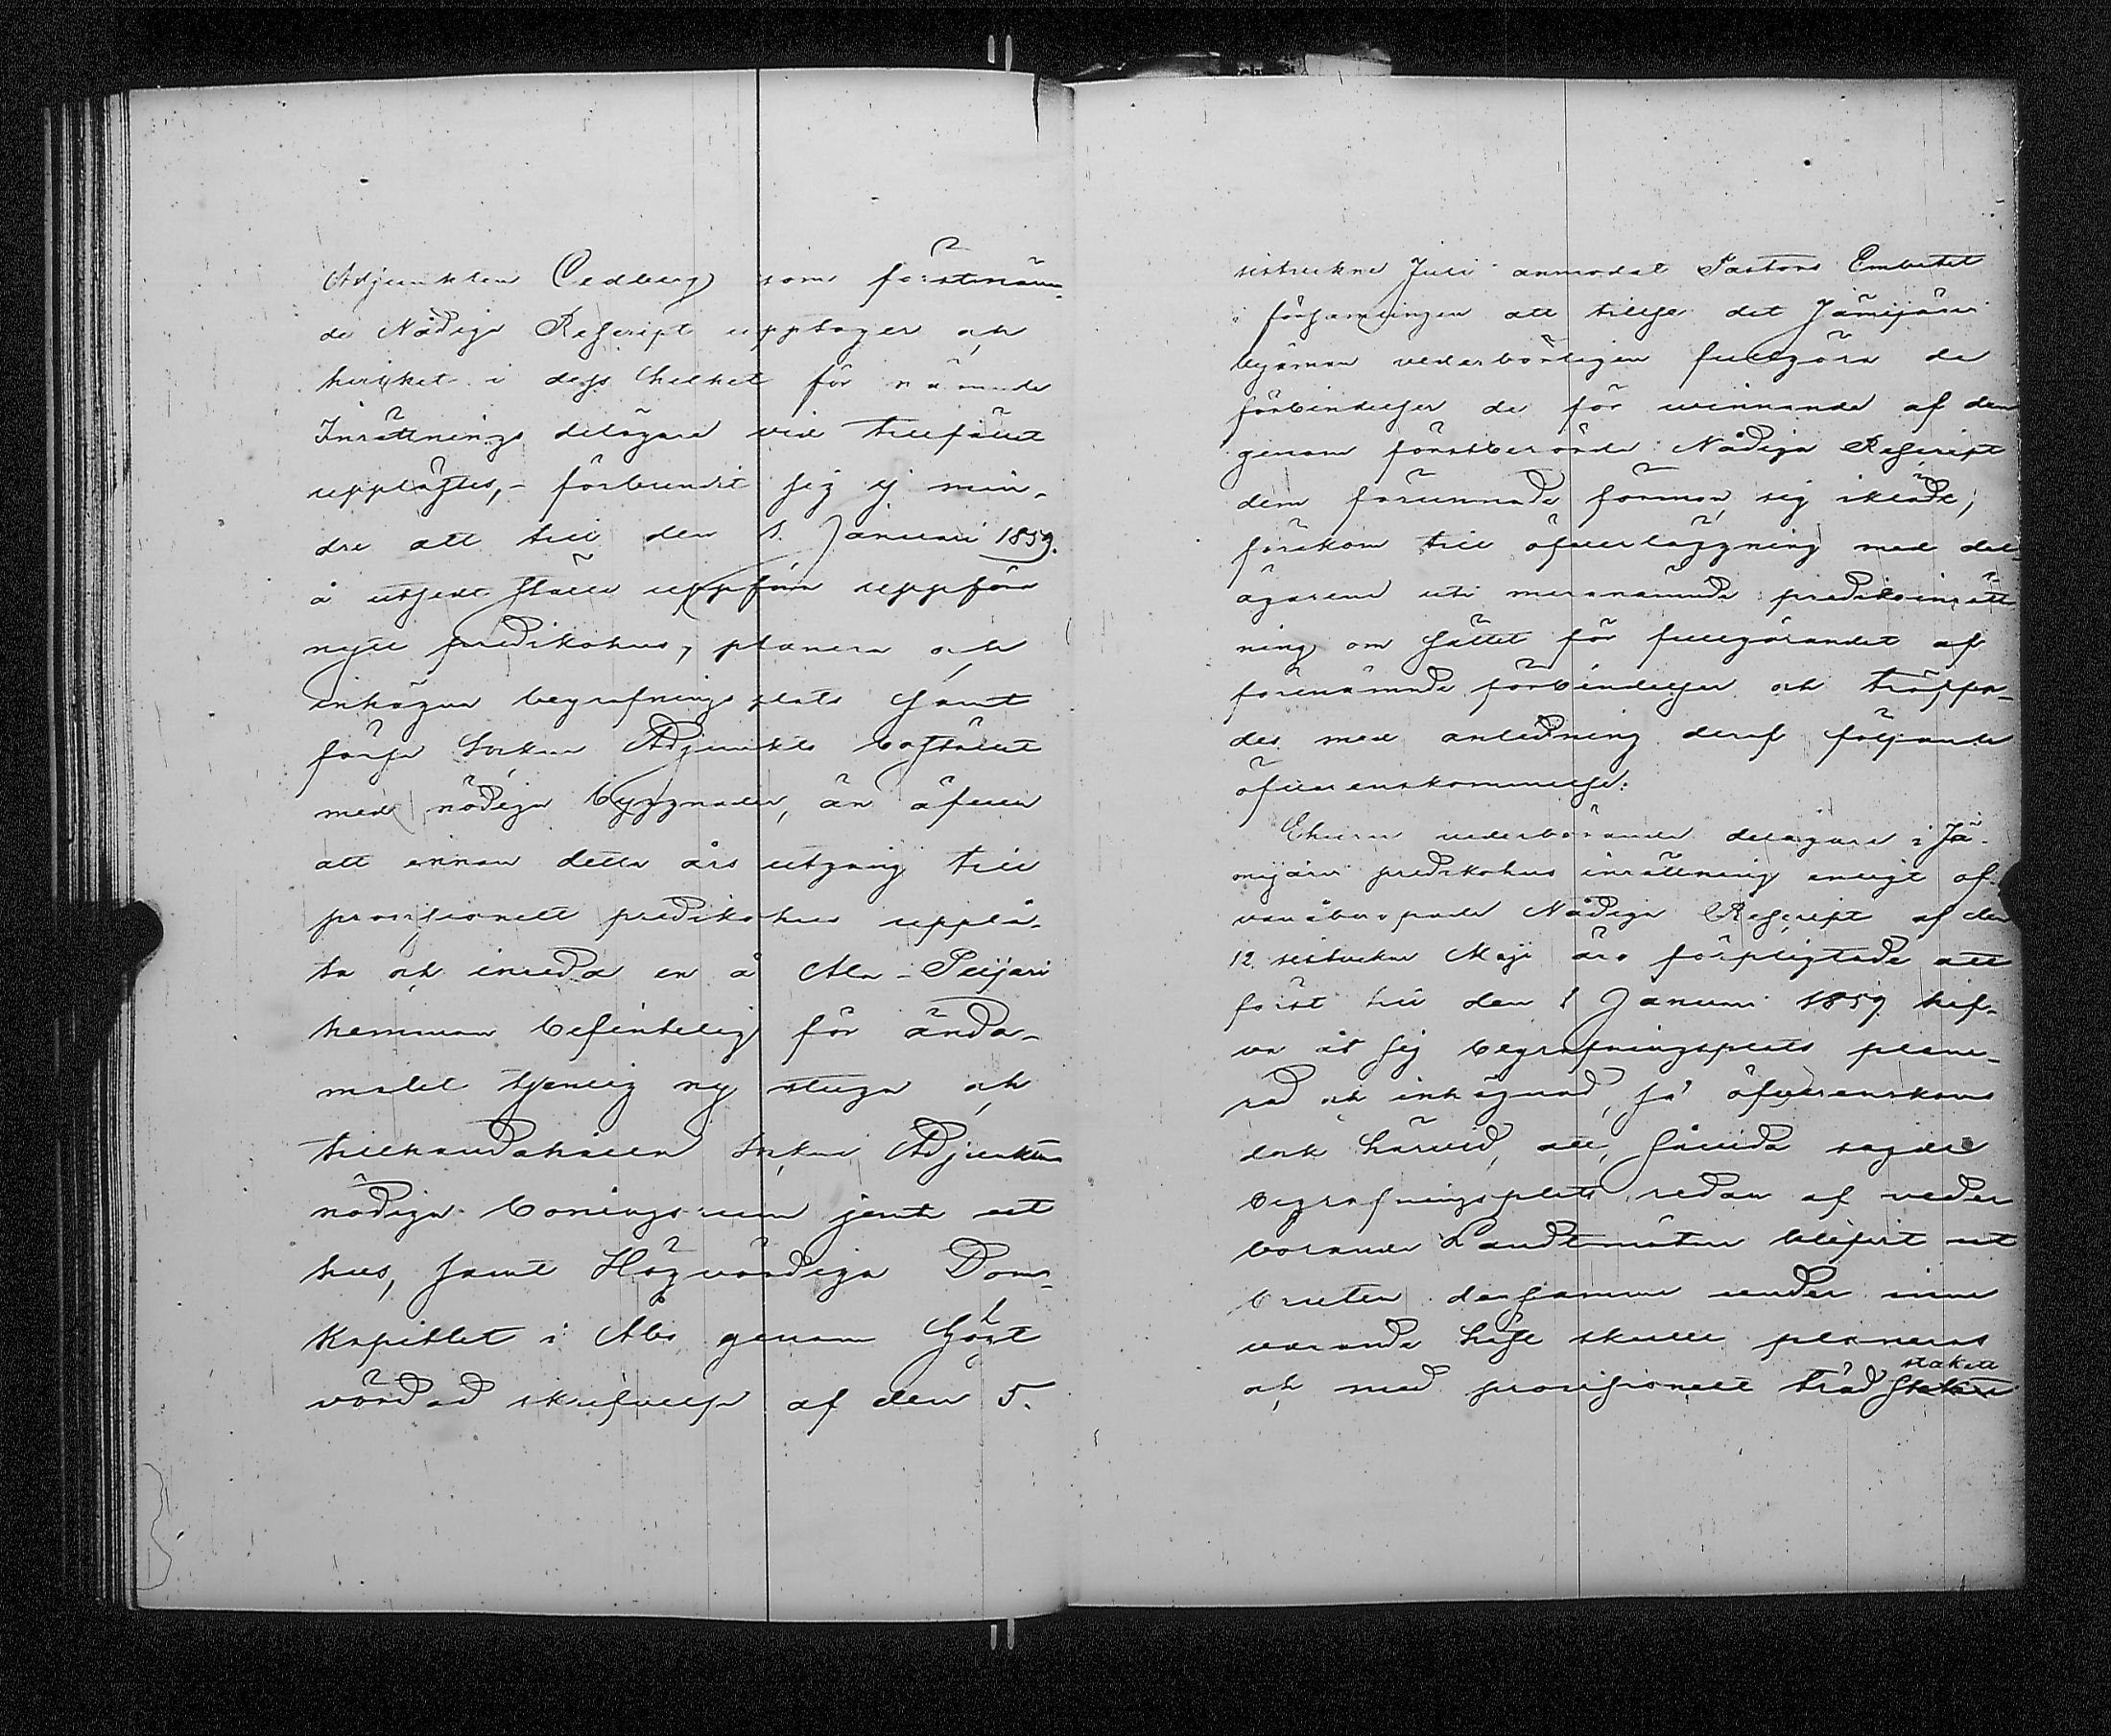 Adjunkten Cedberg som förstnäm¬
de Nådiga Reskript upptager och
hvilket i dess helhet för nämnde
Inrättnings delägare vid tillfället
upplästes, förbundit sig ej min¬
dre att till den 1. Januari 1859.
å utsedt ställe uppföra uppföra
nytt predikohus, planera och
inhägna begrafningsplats samt
förse Sockne Adjunkts bostället
med nödiga byggnader, än äfven
att innan detta års utgång till
provisionelt predikohus upplå¬
ta och inreda en å Ala-Peijari
hemman befintelig för ända¬
målet tjenlig ny stuga och
tillhandahålla Sockne Adjunkten
nödiga boningsrum jemte ut
hus, samt Högvördiga Dom¬
Kapitlet i Åbo genom Högt
vördad skrifvelse af den 5.
sistvekne Juli anmodat Pastors Embetet
i församlingen att tillse det Jämijärvi
byamän vederbörligen fullgöra de
förbindelser de för vinnande af den
genom förstberörde Nådiga Reskript
dem förunnade förmon sig iklädt,
förekom till öfverläggning med del¬
ägarene uti mernämnde predikoinrätt
ning om sättet för fullgörandet af
förenämnde förbindelser och träffa¬
des med anledning deraf följande
öfverenskommelse:
Ehuru vederbörande delägare i Jä¬
mijärvi predikohus inrättning enligt of¬
vanåberopade Nådiga Reskript af den
12 sistvekne Maji äro förpligtade att
först till den 1 Januari 1859 haf¬
va åt sig begrafningsplats plane¬
rad och inhägnad, så öfverenskoms
dock härvid, att, såvida sagde
begrafningsplats redan af veder
börande Landtmätare blifvit ut
bruten densamma under inne
varande höst skulle planeras
stakett
och med provisionelt träd staket